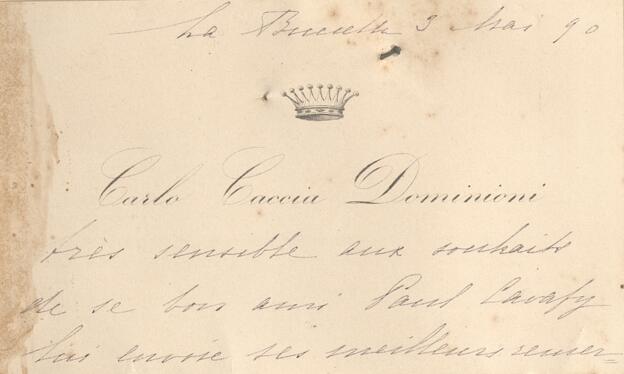 La 3 Mai 90
Carlo Caccia Dominioni
très sensible aux souhaits
de se bon ami Paul Cavafy
lui envoie ses meilleurs remer